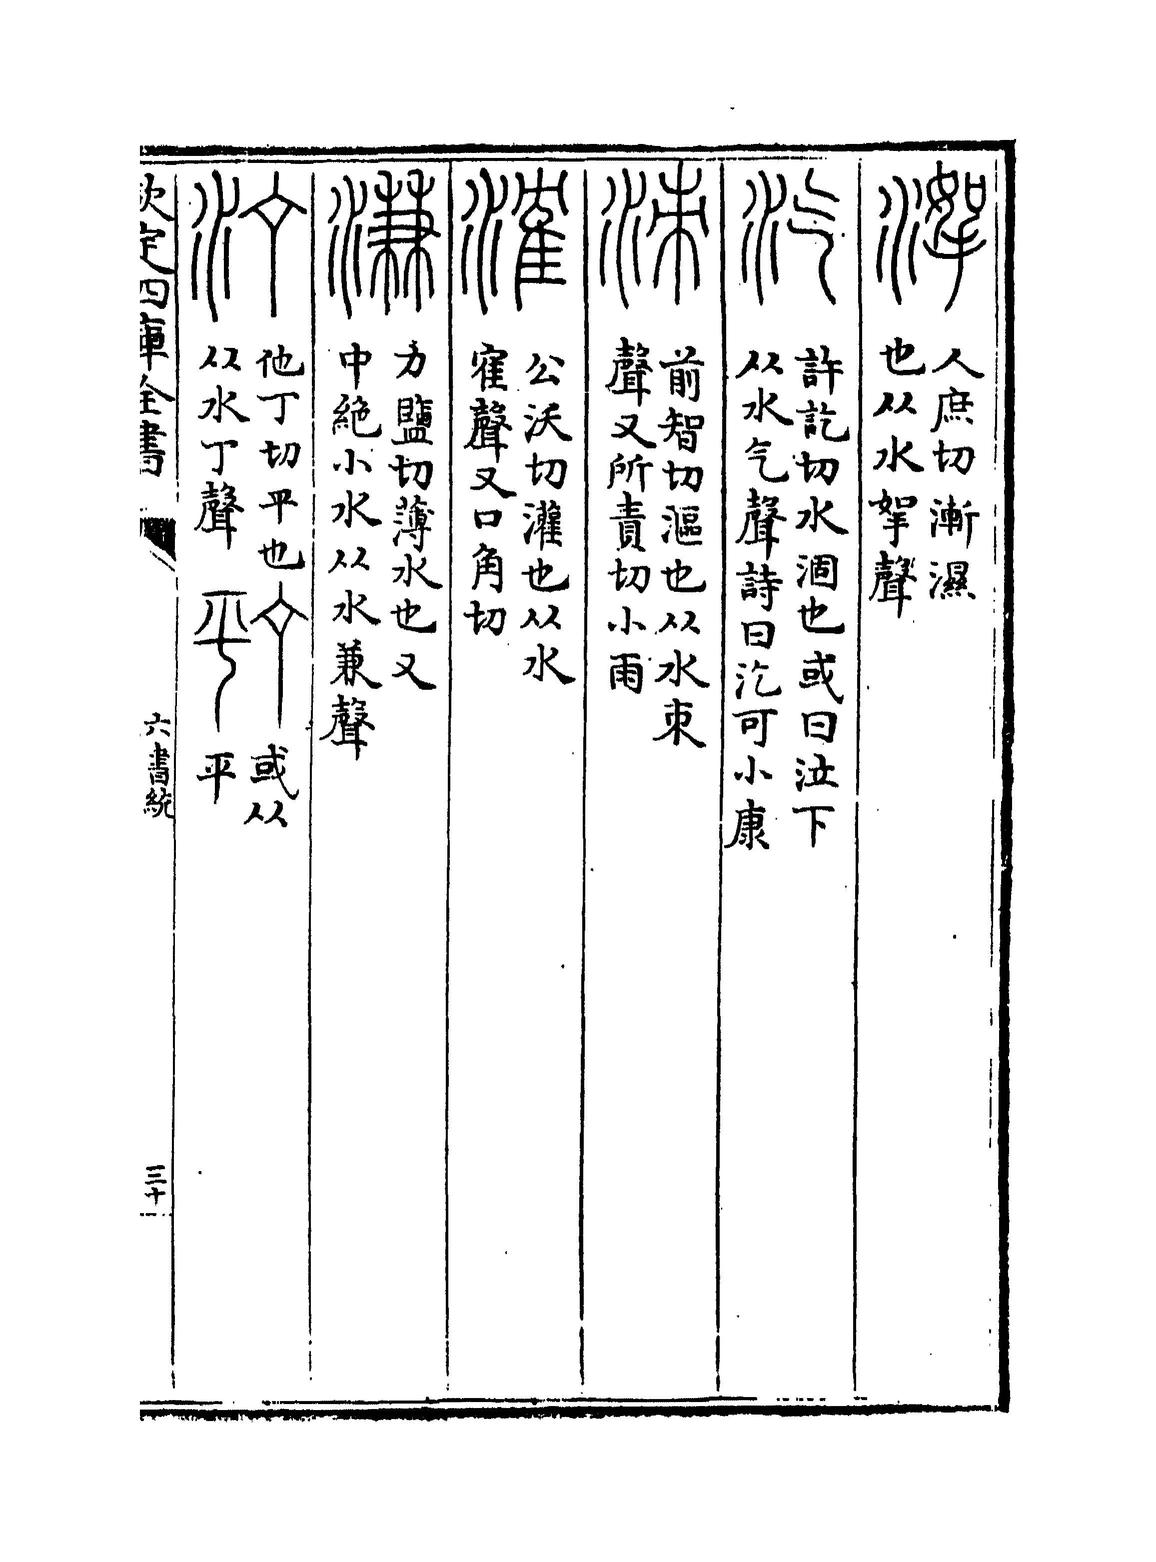 人庶切漸濕
也从水挐聲
汽
許訖切水涸也或曰泣下
从水气聲詩曰汔可小康
前智切漚也从水朿
聲又所責切小雨
公沃切灌也从水
寉聲又口角切
溓
力鹽切薄水也又
中絶小水从水兼聲
汀
他丁切平也
从水丁聲
或从
平
欽定四庫全書
六書統
三十